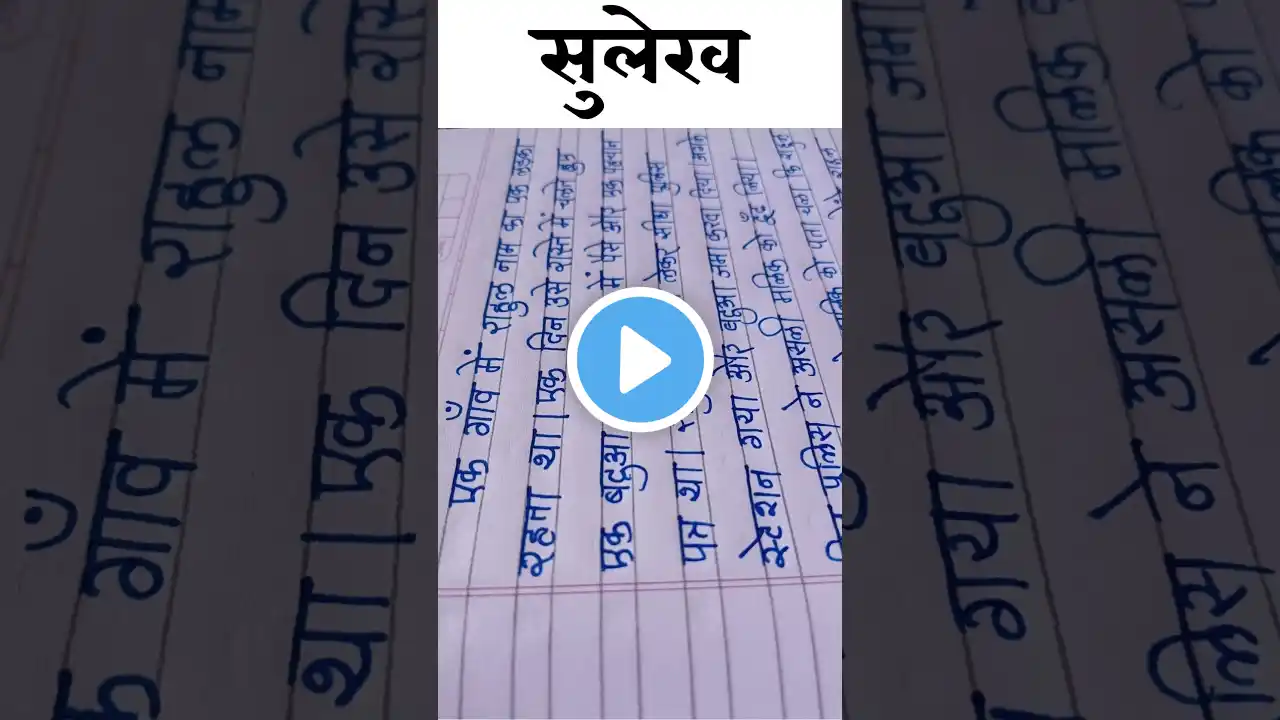 सुलेख
एक गाँव में राहुल नाम का एक लड़का
रहता था। एक दिन उसे रास्ते में चलते हुए
एक बटुआ में पैसे और एक पहचान
पत्र था। लेकर सीधा पुलिस
स्टेशन गया और बटुआ जमा करवा दिया। अगले
दिन पुलिस ने असली मालिक को ढूँढ लिया।
को पता चला कि राहुल